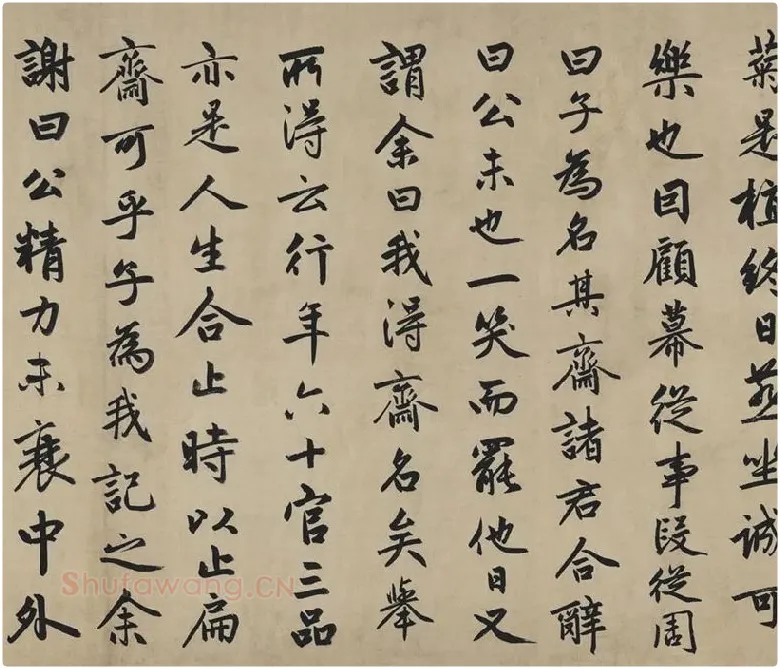 菜是植終日燕坐誠可
樂也回顧幕從事段從周
曰子為名其齋諸君合辭
曰公未也一笑而罷他日又
謂余曰我得齋名矣舉
所得云行年六十官三品
亦是人生合止時以止扁
齋可乎子為我記之余
謝曰公精力未衰中外
Shufawang.CN